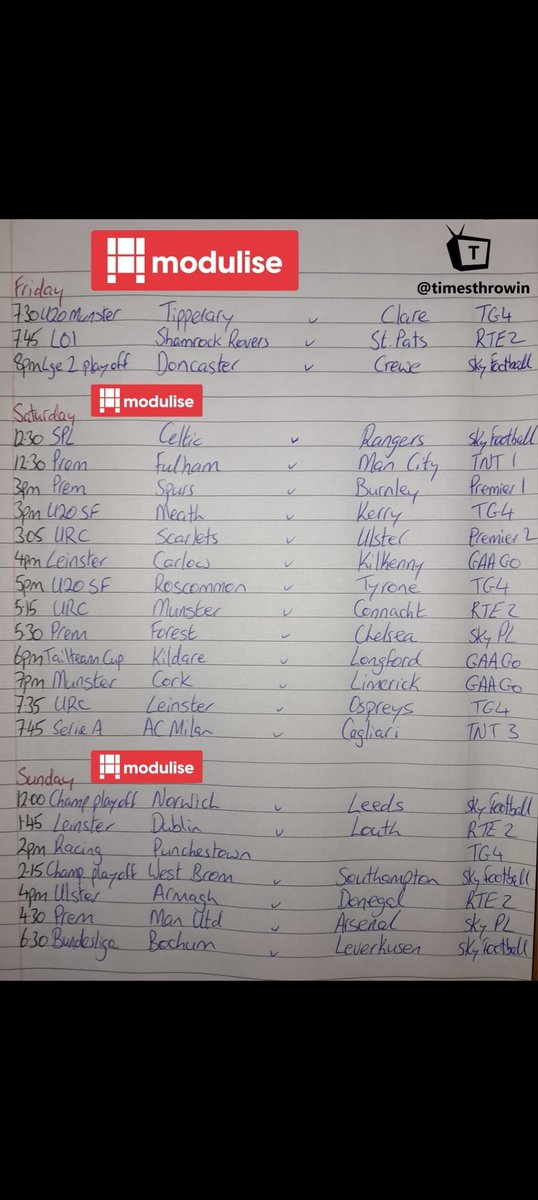 modulise
T
@timesthrowin
Friday
7.30 U20 Munster Tipperary v Clare TG4
7.45 LOI Shamrock Rovers v St. Pats RTE2
8pm Lge 2 playoff Doncaster v Crewe Sky Football
modulise
Saturday
12:30 SPL Celtic v Rangers Sky Football
12:30 Prem Fulham v Man City TNT 1
3pm Prem Spurs v Burnley Premier 1
3pm U20 SF Meath v Kerry TG4
3.05 URC Scarlets v Ulster Premier 2
4pm Leinster Carlow v Kilkenny GAAGO
5pm U20 SF Roscommon v Tyrone TG4
5.15 URC Munster v Connacht RTE 2
5.30 Prem Forest v Chelsea Sky PL
6pm Tailteann Cup Kildare v Longford GAAGO
7pm Munster Cork v Limerick GAAGO
7.35 URC Leinster v Ospreys TG4
7.45 Serie A AC Milan v Cagliari TNT 3
modulise
Sunday
12:00 Champ playoff Norwich v Leeds Sky Football
1:45 Leinster Dublin v Louth RTE 2
2pm Racing Punchestown TG4
2.15 Champ playoff West Brom v Southampton Sky Football
4pm Ulster Armagh v Donegal RTE 2
4.30 Prem Man Utd v Arsenal Sky PL
6:30 Bundesliga Bochum v Leverkusen Sky Football